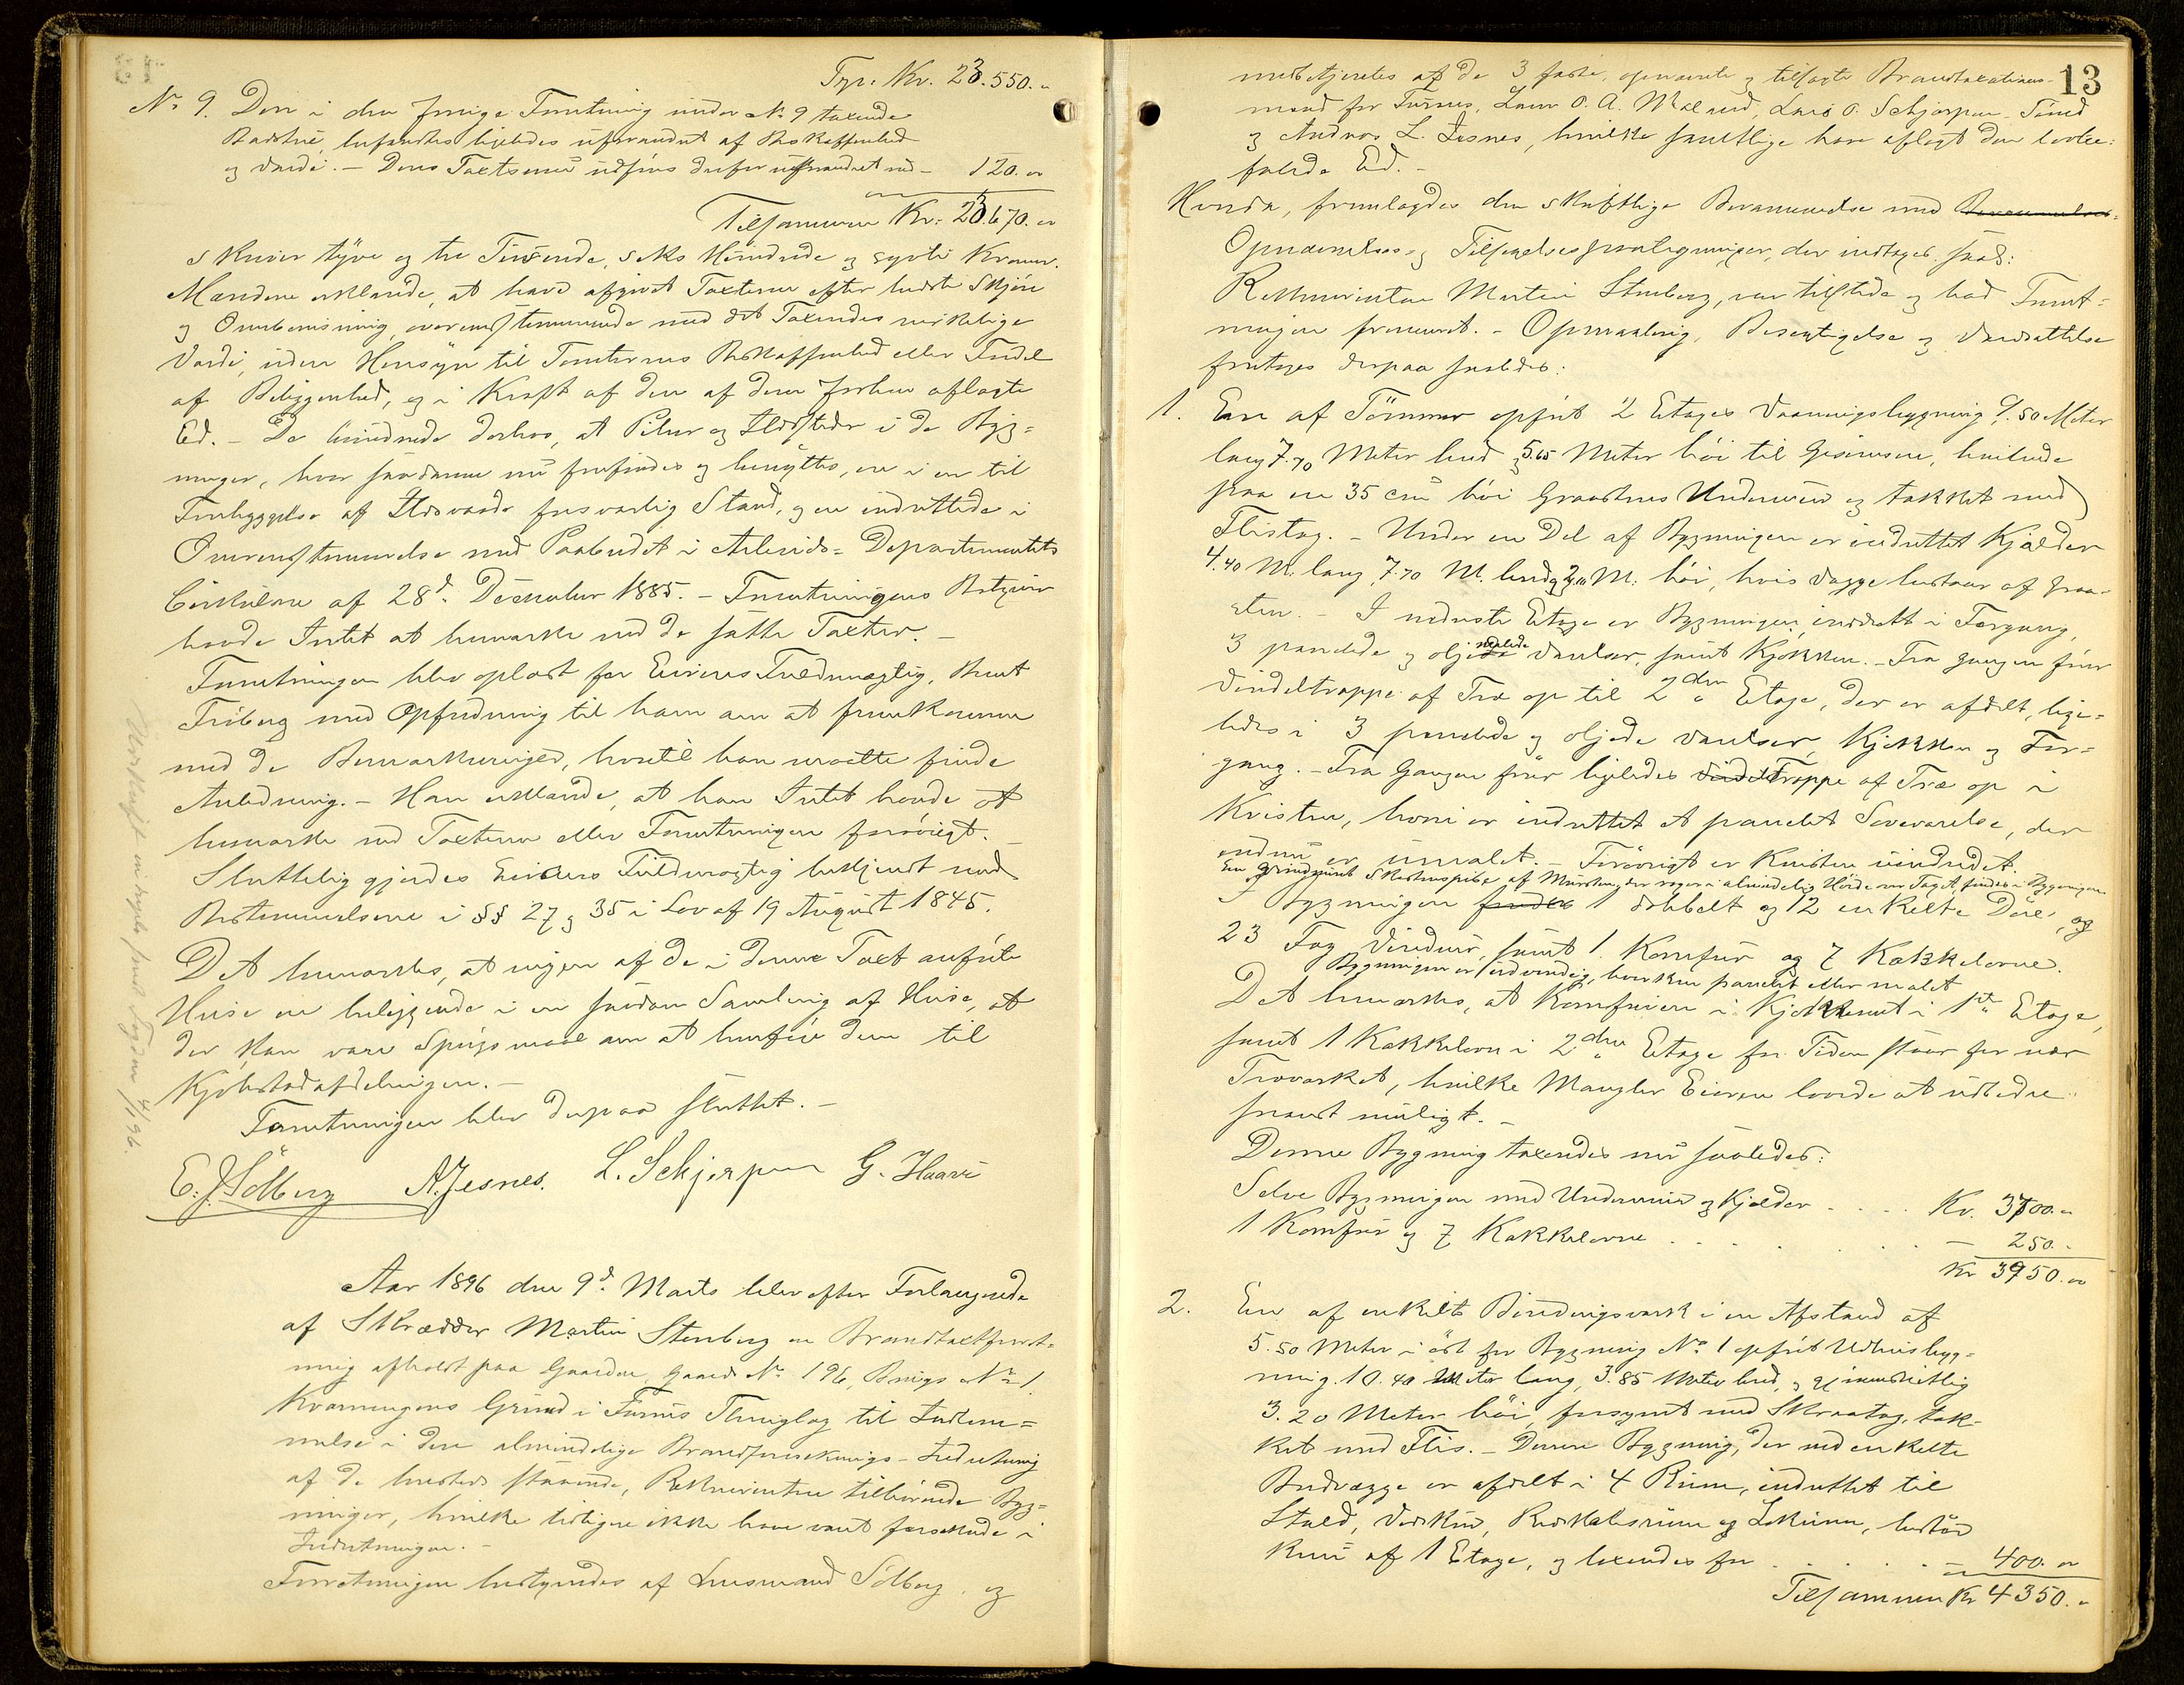 Trp. Kr. 23.550.
No 9. Den i den forrige Forretning under No 9 taxerede
Badstue, befandtes ligeledes uforandret af Beskaffenhed
og Værdi. – Dens Taxtsum udføres derfor uforandret med – 120.
Tilsammen Kr: 23.670.
skriver tyve og tre Tusende, seks Hundrede og sytti Kroner.
Mændene erklærede, at have afgivet Taxterne efter bedste Skjøn
og Overbevisning, overensstemmende med det Taxeredes virkelige
Værdi, uden Hensyn til Tomternes Beskaffenhed eller Fordel
af Beliggenhed, og i Kraft af den af dem forhen aflagte
Ed. – De bemærkede derhos, at Piber og Ildsteder i de Byg-
ninger, hvor saadanne nu forefindes og benyttes, ere i en til
Forebyggelse af Ildsvaade forsvarlig Stand, og ere indrettede i
Overensstemmelse med Paabudet i Arbeids-Departementets
Cirkulære af 28d December 1885. – Forretningens Bestyrer
havde Intet at bemærke ved de satte Taxter. –
Forretningen blev oplæst for Eierens Fuldmægtig, Bernt
Friberg med Opfordring til ham om at fremkomme
med de Bemærkninger, hvortil han maatte finde
Anledning. – Han erklærede, at han Intet havde at
bemærke ved Taxterne eller Forretningen forøvrigt. –
Sluttelig gjordes Eierens Fuldmægtig bekjendt med
Bestemmelserne i §§ 27 og 35 i Lov af 19 August 1845.
Det bemærkes, at ingen af de i denne Taxt anførte
Huse ere beliggende i en saadan Samling af Huse, at
der kan være Spørgsmaal om at henføre dem til
Kjøbstadafdelingen. –
Forretningen blev derpaa sluttet. –
E. J. Solberg A. Jesnes. L. Schjerpen G. Haave
Aar 1896 den 9d Marts blev efter Forlangende
af Skrædder Martin Stenberg en Brandtaxtforret-
ning afholdt paa Gaarden, Gaards No 196, Brugs No 1
Kværnengens Grund i Furnes Thinglag til Indlem-
melse i den almindelige Brandforsikrings-Indretning
af de hersteds staaende, Rekvirenten tilhørende Byg-
ninger, hvilke tidligere ikke have været forsikrede i
Indretningen. –
Forretningen bestyredes af Lensmand Solberg, og
13
medbetjentes af de 3 faste, opnævnte og tilsagte Brandtaxations-
mænd for Furnes, Lars O. A. Mæland, Lars O. Schjerpen
og Andreas L. Jesnes, hvilke samtlige have aflagt den lovbe-
falede Ed. –
Herda, fremlagdes den skriftlige Berammelse med
Opnævnelses- og Tilsigelsespaategninger, der indtages saal:
Rekvirenten Martin Stenberg, var tilstede og bad Forret-
ningen fremmet. – Opmaaling, Besigtigelse og Værdsættelse
foretoges derpaa saaledes:
1. En af Tømmer opført 2 Etages Vaaningsbygning 9.50 Meter
lang 7.70 Meter bred og 5.65 Meter høi til Gesimsen, hvilende
paa en 35 cm høi Graastens Undermur og takket med
Flistag. – Under en Del af Bygningen er indrettet Kjælder
4.40 M. lang, 7.70 M. bred og M. høi, hvis Vægge bestaar af Graa-
sten. – I nederste Etage er Bygningen inddelt i Forgang,
3 panelede og oljemalede Værelser, samt Kjøkken. – Fra Gangen fører
Vindeltrappe af Træ op til 2den Etage, der er afdelt, lige-
ledes i 3 panelede og oljede Værelser, Kjøkken og For-
gang. – Fra Gangen fører ligeledes Vindeltrappe af Træ op i
Kvisten, hvori er indrettet et panelet Soveværelse, der
endnu er umalet. – Forøvrigt er Kvisten uindredet.
En grundmuret Skorstenspibe af Mursten, der rager i almindelig Høide over Taget, findes i Bygningen
I Bygningen findes 1 dobbelt og 12 enkelte Døre, og
23 Fag Vinduer, samt 1 Komfur og 7 Kakkelovne.
Bygningen er udvendig, hverken panelet eller malet
Det bemærkes, at Komfuren i Kjøkkenet i 1ste Etage,
samt 1 Kakkelovn i 2den Etage for Tiden staar for nær
Træværket, hvilke Mangler Eieren lovede at udbedre
snarest muligt. –
Denne Bygning taxeredes nu saaledes:
Selve Bygningen med Undermur og Kjælder . . . . Kr. 3700.
1 Komfur og 7 Kakkelovne . . . . . – 250.
Kr 3950.
2. En af enkelt Bindingsværk i en Afstand af
5.50 Meter i øst for Bygning No 1 opført Udhusbyg-
ning. 10.40 Meter lang, 3.85 Meter bred, og gjennemsnitlig
3.20 Meter høi, forsynet med Skraatag, tak-
ket med Flis. – Denne Bygning, der med enkelte
Bordvægge er afdelt i 4 Rum, indrettet til
Stald, Vedskur, Redskabsrum og Lokum, bestaar
kun af 1 Etage, og taxeredes for . . . . . – 400.
Tilsammen Kr 4350.